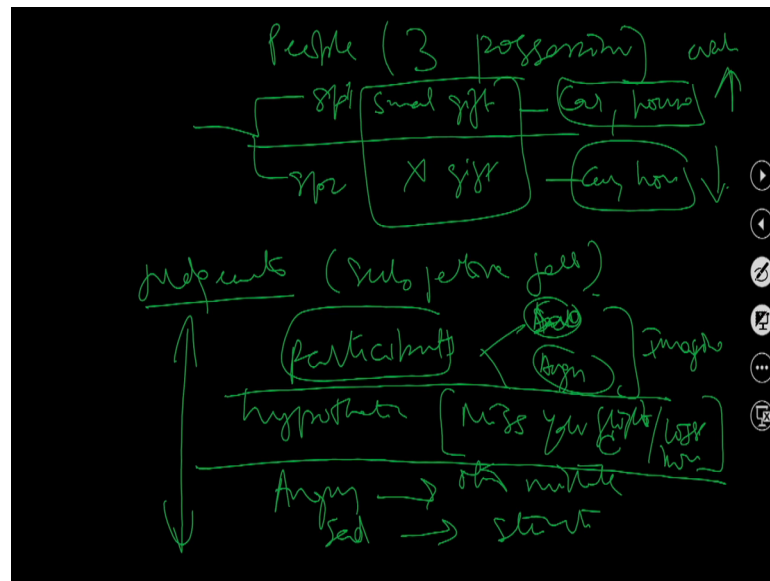 People (3 possession)
gp1 Small gift - Car, house ↑
gp2 X gift - Car, hou ↓
Judgments (Sub jetive feel)
participants Sad
Angr Imagine
hypothetic [Miss your flight / loss
Angry → mistake
Sad → situat